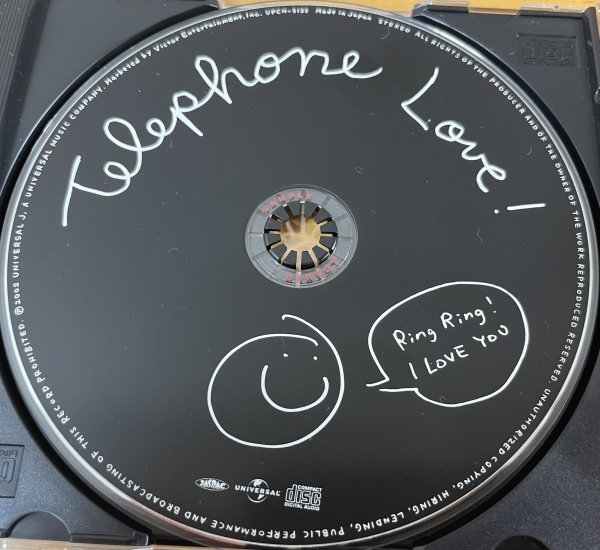 Telephone Love!
Ring Ring!
I LOVE YOU
SAMPLE
UNIVERSAL
COMPACT
disc
DIGITAL AUDIO
©2002 UNIVERSAL J, A UNIVERSAL MUSIC COMPANY. Marketed by Victor Entertainment, Inc. UPCH-5139 Made in Japan STEREO ALL RIGHTS OF THE PRODUCER AND OF THE OWNER OF THE WORK REPRODUCED RESERVED. UNAUTHORIZED COPYING, HIRING, LENDING, PUBLIC PERFORMANCE AND BROADCASTING OF THIS RECORD PROHIBITED.